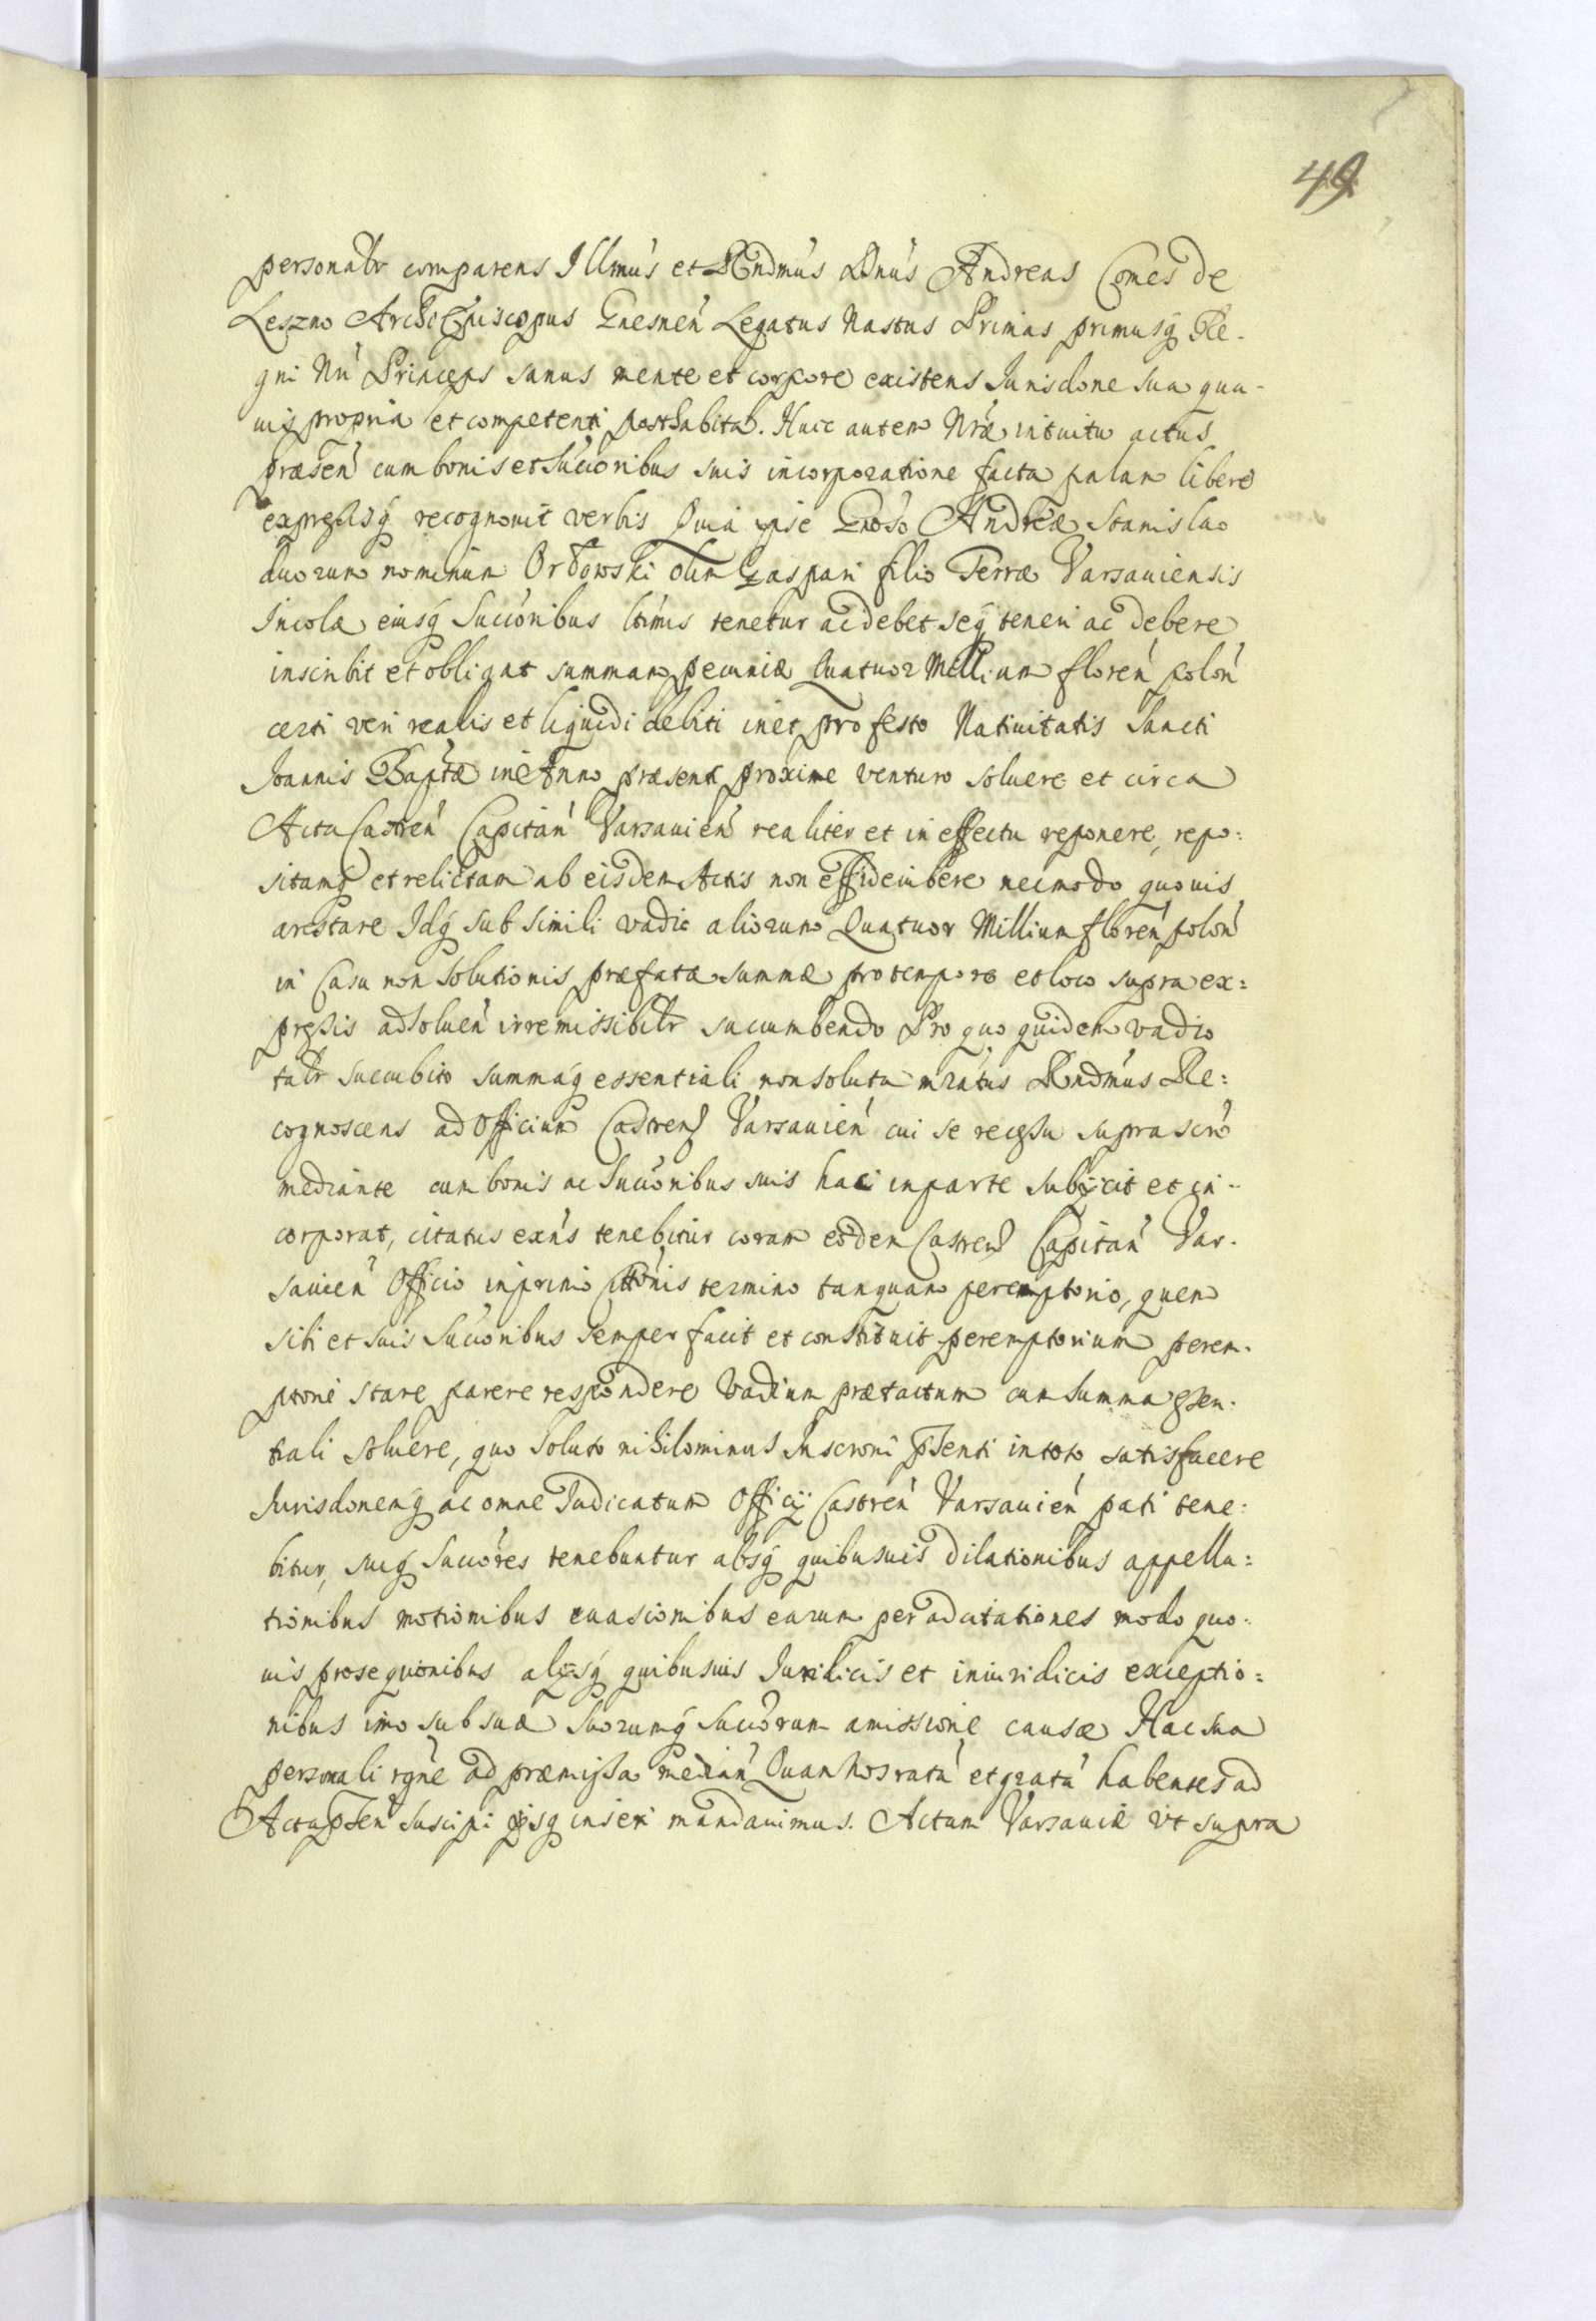 49
personalr comparens Illmus et Rndmus Dnus Andreas Comes de
Leszno Archi Episcopus Gnesnen Legatus Nastus Primas primusq Re-
gni Nri Princeps sanus mente et corpore existens Jurisdone sua qua-
uis propria et competenti posthabita. Huic autem Nrae intuitu actus
praesen cum bonis et Succoribus suis incorporatione facta palam libere
expressisq recognouit verbis Quia ipse Gnoso Andreae Stanislao
duorum nominum Orłowski olim Gaspari filio Terrae Varsauiensis
Incolae eiusq Succoribus ltimis tenetur ac debet seq teneri ac debere
inscribit et obligat summam pecuniae Quatuor Millium floren polon
certi veri realis et liquidi debiti inet pro festo Natiuitatis Sancti
Joannis Baptae in Anno praesenti proxime venturo soluere et circa
Acta Castren Capitan Varsauien realiter et in effectu reponere, repo:
sitamq et relictam ab eisdem Actis non effidembere nec modo quouis
arestare Idq sub simili vadio aliorum Quatuor Millium floren polon
in Casu non solutionis praefatae summae pro tempore et loco supra ex:
pressis adsoluen irremissibilr succumbendo Pro quo quidem vadio
talr succubito summaq essentiali non soluta mratus Rndmus Re:
cognoscens ad Officium Castren Varsauien cui se recessu suprascro
mediante cum bonis ac Succoribus suis hac in parte subijcit et in-
corporat, citatus exns tenebitur coram eodem Castren Capitan Var-
sauien Officio in primo Cittonis termino tanquam peremptorio, quem
sibi et suis Succoribus semper facit et constituit peremptorium perem-
ptorie stare parere respondere Vadium praetactum cum Summa essen-
tiali soluere, quo soluto nihilominus Inscroni psenti in toto satisfacere
Jurisdonemq ac omne Judicatum Officij Castren Varsauien pati tene:
bitur, suiq Succores tenebuntur absq quibusuis dilationibus appella:
tionibus motionibus euasionibus earum per adcitationes modo quo-
uis prosequonibus alijsq quibusuis Juridicis et iniuridicis exceptio:
nibus imo sub suae suorumq Succorum amissione causae Hac sua
personali rgne ad praemissa median Quam Nos rata et grata habentes ad
Acta psen suscipi ijsq inseri mandauimus. Actum Varsauiae vt supra